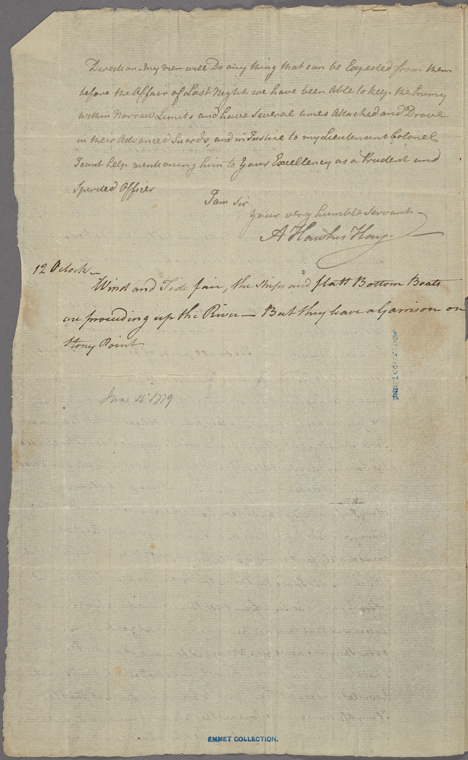 Direction. my men will Do any thing that can be Expected from them
before the Affair of Last Night we have been Able to keep the Enemy
within Narrow Limits and have Several times Attacked and Drove
in their Advanced Guards, and in Justice to my Lieutenant Colonel
I cant help mentioning him to Your Excellency as a Prudent and
Spirited Officer
I am Sir
your very humble Servant
A Hawkes Hay
12 Oclock —
Wind and Tide fair, the Ships and flatt Bottom Boats
are proceeding up the River — But they leave a Garrison on
Stony Point
June 1779
EMMET COLLECTION.